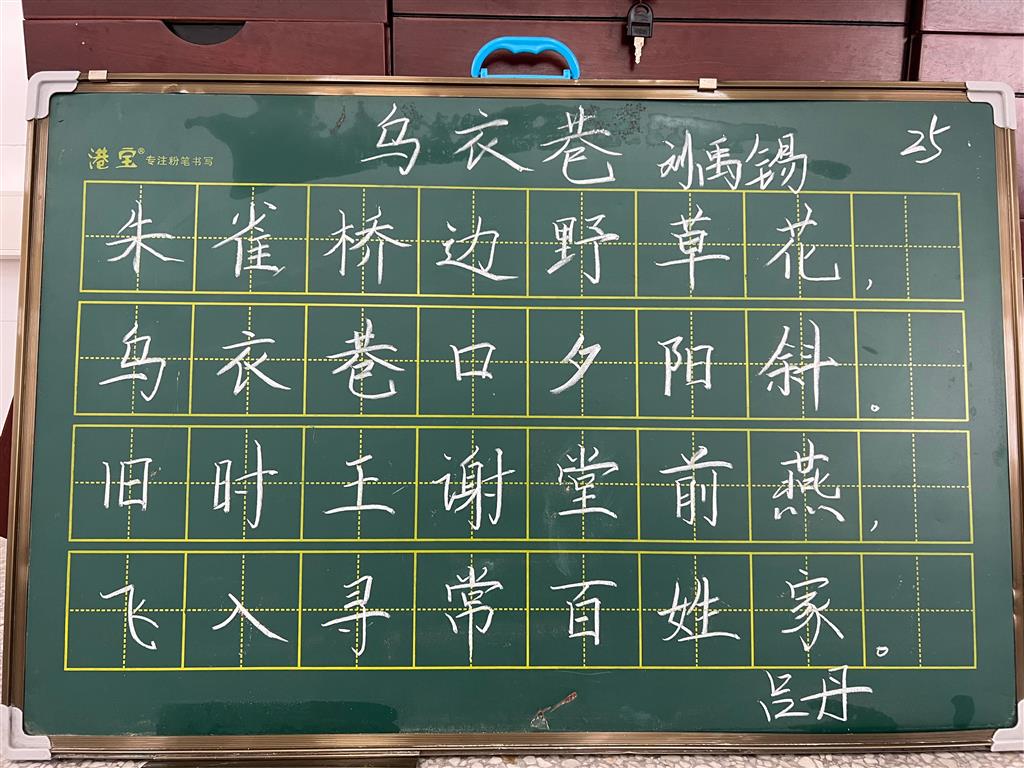 乌衣巷 刘禹锡 25
港宝® 专注粉笔书写
朱雀桥边野草花,
乌衣巷口夕阳斜。
旧时王谢堂前燕,
飞入寻常百姓家。
吕丹